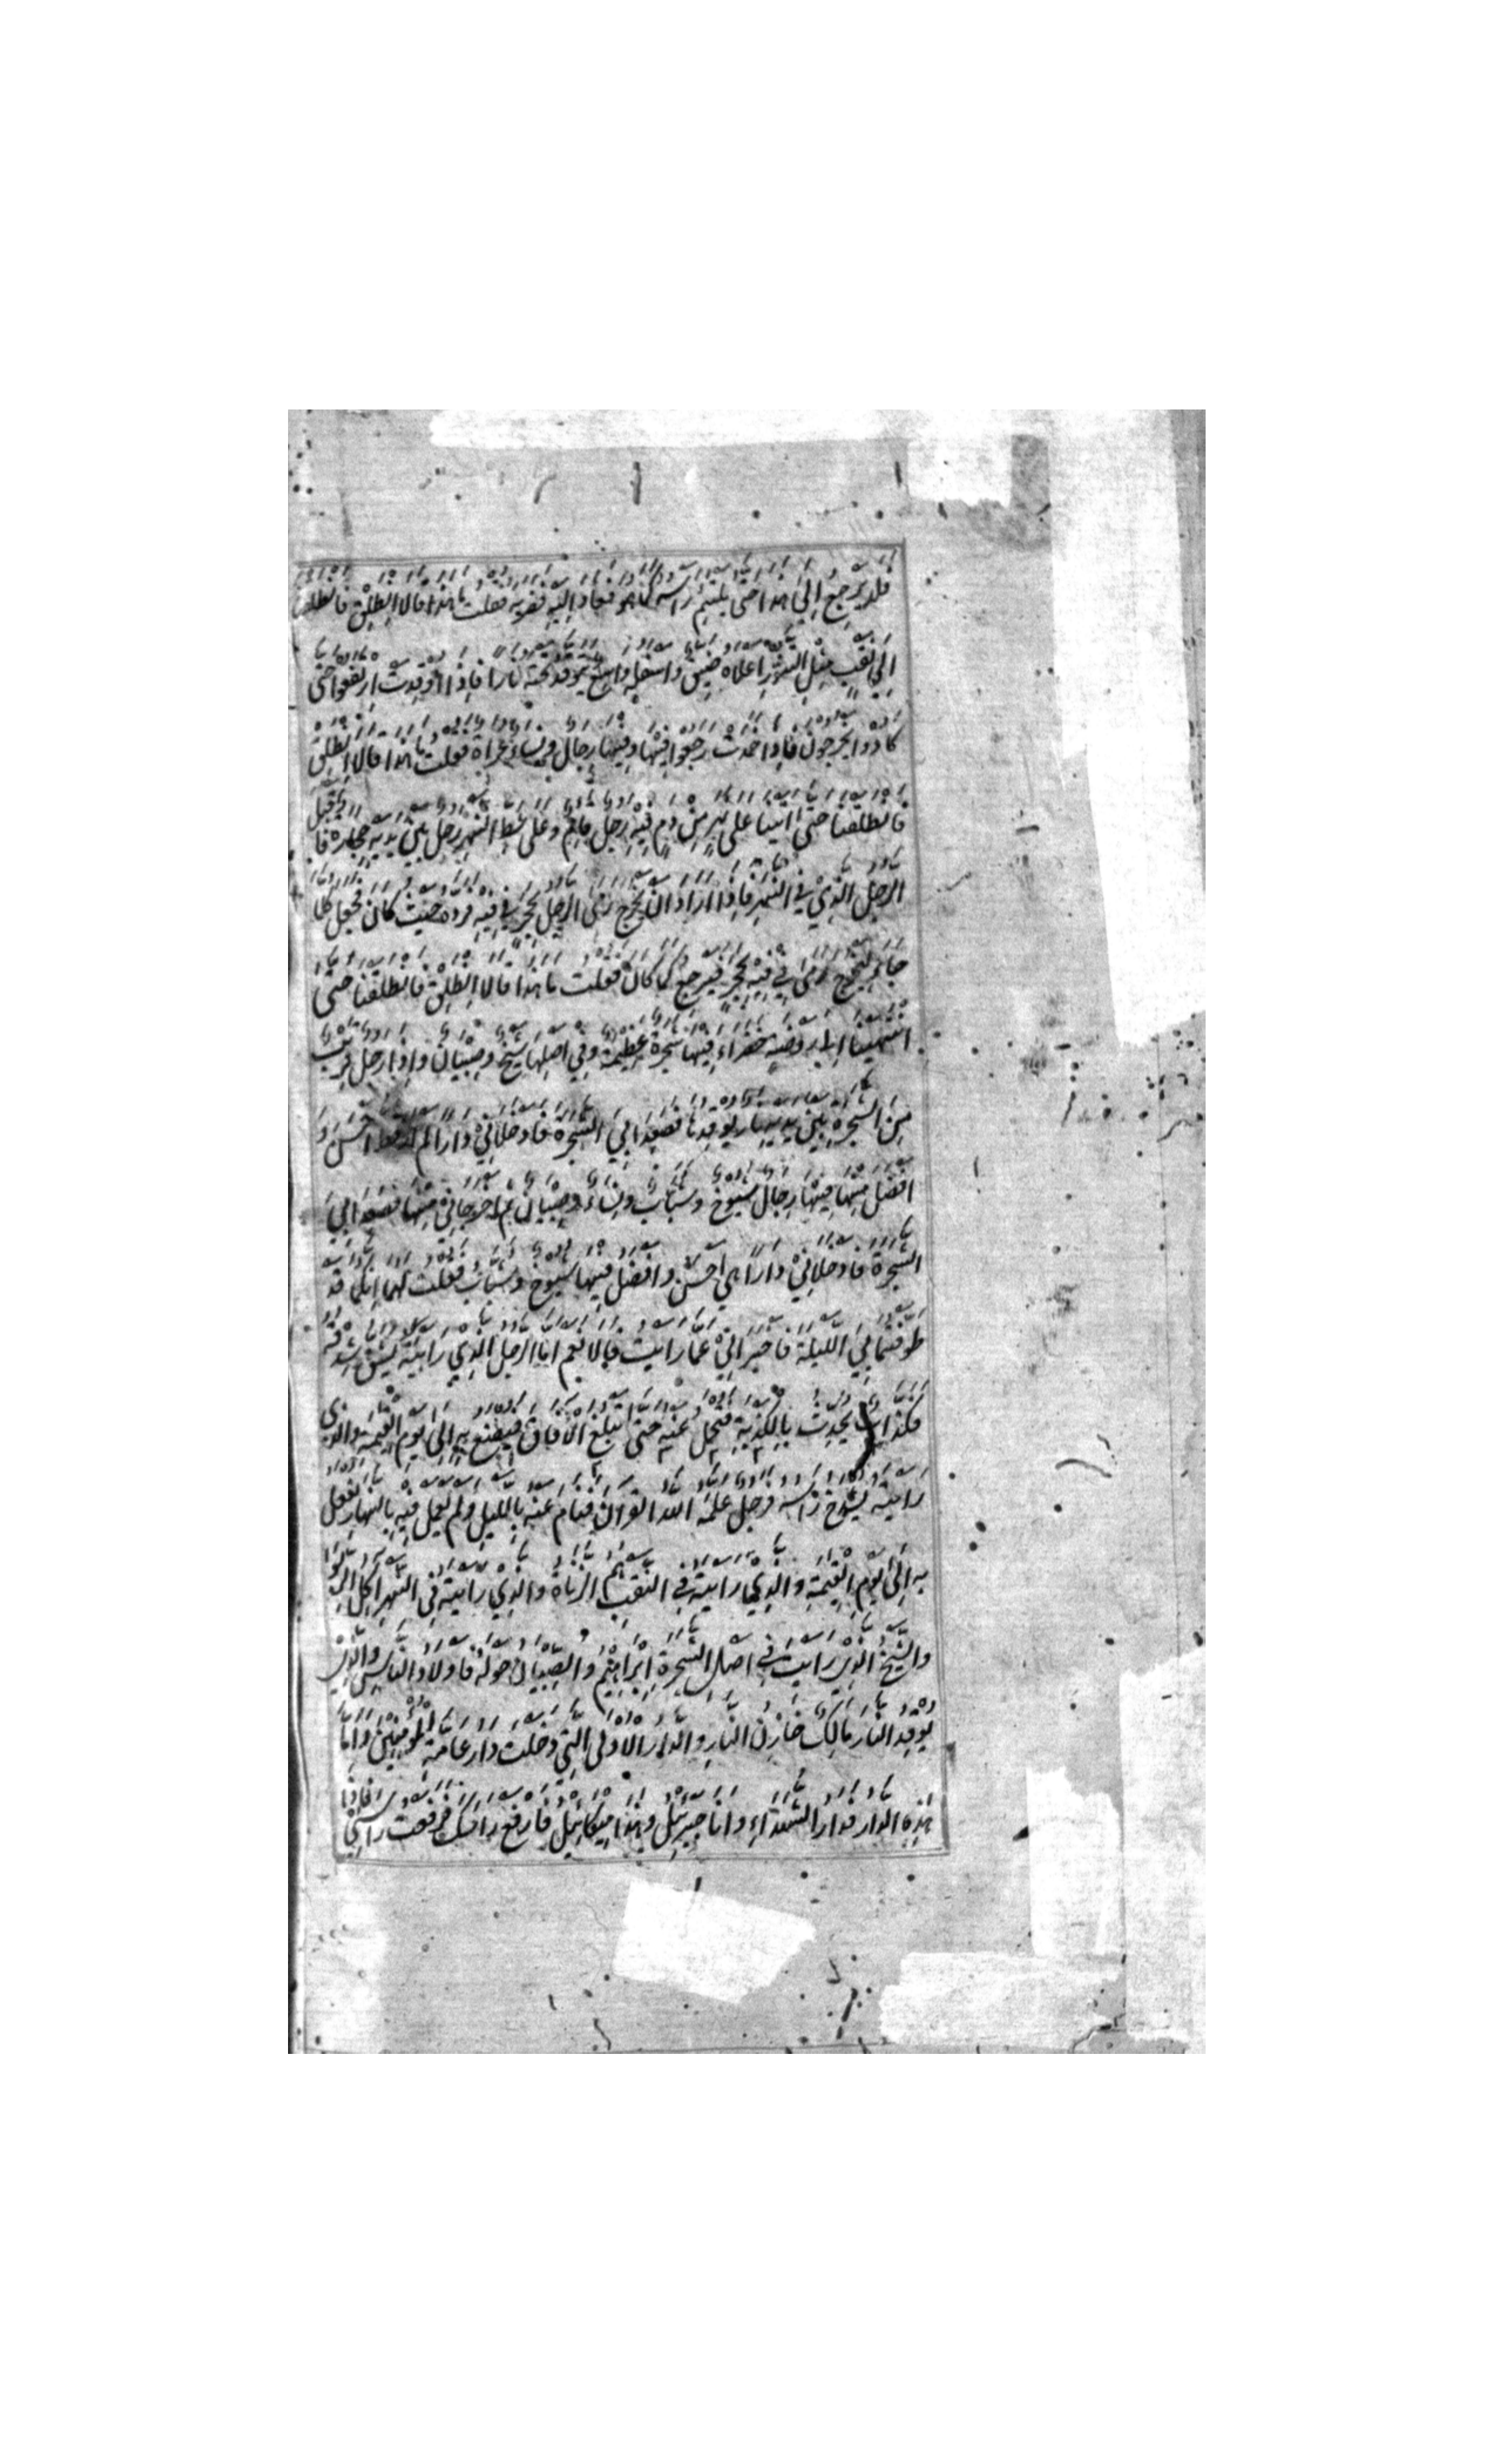 فلا يرجع الى هذا حتى يلتئم راسه كما هو فعاد اليه فضربه فقلت ما هذا قالا انطلق فانطلقنا
الى نقب مثل التنور اعلاه ضيق واسفله واسع يتوقد تحته نارا فاذا اوقدت ارتفعوا حتى
كادوا يخرجون فاذا خمدت رجعوا فيها وفيها رجال ونساء عراة فقلت ما هذا قالا انطلق
فانطلقنا حتى اتينا على نهر من دم فيه رجل قائم وعلى شط النهر رجل بين يديه حجارة فاقبل
الرجل الذي في النهر فاذا اراد ان يخرج رمى الرجل بحجر في فيه فرده حيث كان فجعل كلما
جاء ليخرج رمى في فيه بحجر فيرجع كما كان فقلت ما هذا قالا انطلق فانطلقنا حتى
انتهينا الى روضة خضراء فيها شجرة عظيمة وفي اصلها شيخ وصبيان واذا رجل قريب
من الشجرة بين يديه نار يوقدها فصعدا بي الشجرة فادخلاني دارا لم ار قط احسن و
افضل منها فيها رجال شيوخ وشباب ونساء وصبيان ثم اخرجاني منها فصعدا بي
الشجرة فادخلاني دارا هي احسن وافضل فيها شيوخ وشباب فقلت لهما انكما قد
طوفتماني الليلة فاخبراني عما رايت قالا نعم اما الرجل الذي رايته يشق شدقه
فكذاب يحدث بالكذبة فتحمل عنه حتى تبلغ الافاق فيصنع به الى يوم القيمة والذي
رايته يشدخ راسه فرجل علمه الله القران فنام عنه بالليل ولم يعمل فيه بالنهار يفعل
به الى يوم القيمة والذي رايته في النقب هم الزناة والذي رايته في النهر اكل الربوا
والشيخ الذي رايت في اصل الشجرة ابراهيم والصبيان حوله فاولاد الناس والذي
يوقد النار مالك خازن النار والدار الاولى التي دخلت دار عامة المومنين واما
هذه الدار فدار الشهداء وانا جبرئيل وهذا ميكائيل فارفع راسك فرفعت راسي فاذا